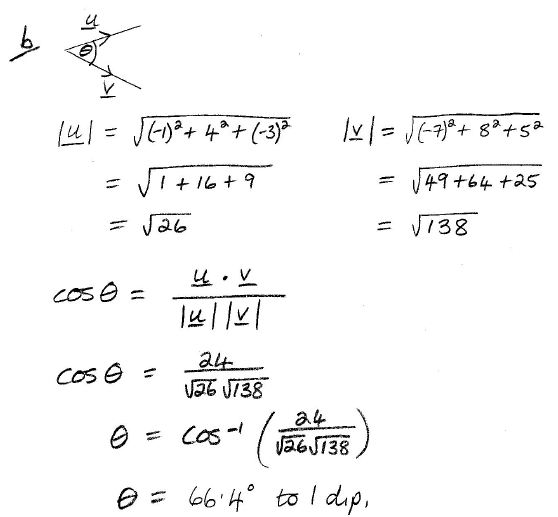 b
u
θ
v
|u| = √(-1)²+ 4²+ (-3)²    |v| = √(-7)²+ 8²+ 5²
= √1 + 16 + 9    = √49 + 64 + 25
= √26    = √138
cos θ = u · v / |u| |v|
cos θ = 24 / √26 √138
θ = cos⁻¹ (24 / √26 √138)
θ = 66·4° to 1 d.p.